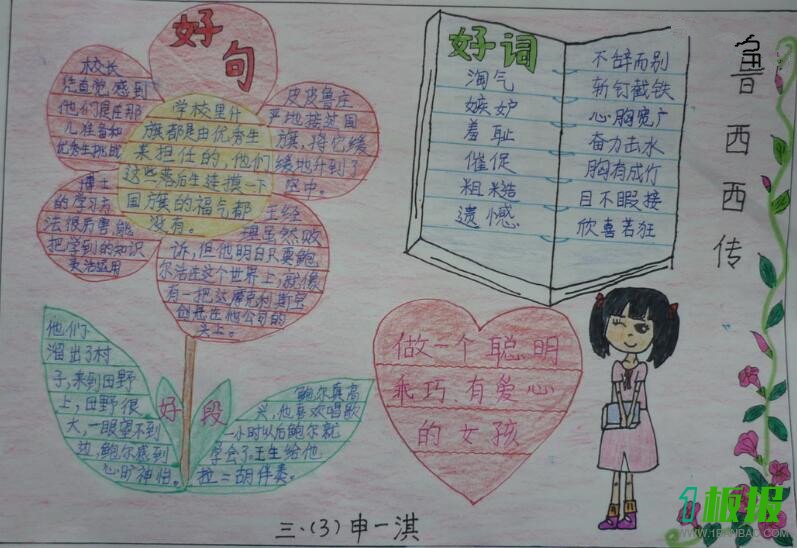 好
句
校长
凭直觉,感到
他们俩在那
儿准备和
优秀生挑战
皮皮鲁庄
严地接过国
旗,将它缓
缓地升到了
空中。
学校里升
旗都是由优秀生
来担任的,他们
这些落后生连摸一下
国旗的福气都
没有。
博士
的学习方
法很厉害,能
把学到的知识
灵活运用
王经
理虽然败
诉,但他明白只要鲍
尔活在这个世界上,就像
有一把达摩克利斯宝
剑悬在他公司的
头上。
他们
溜出了村
子,来到田野
上,田野很
大,一眼望不到
边,鲍尔感到
心旷神怡。
好 段
鲍尔真高
兴,他喜欢唱歌
一小时以后鲍尔就
学会了,王生给他
拉二胡伴奏。
好词
淘气
嫉妒
羞耻
催促
粗糙
遗憾
不辞而别
斩钉截铁
心胸宽广
奋力击水
胸有成竹
目不暇接
欣喜若狂
鲁西西传
做一个聪明
乖巧、有爱心
的女孩
三、(3)申一淇
1板报
WWW.1BANBAO.COM